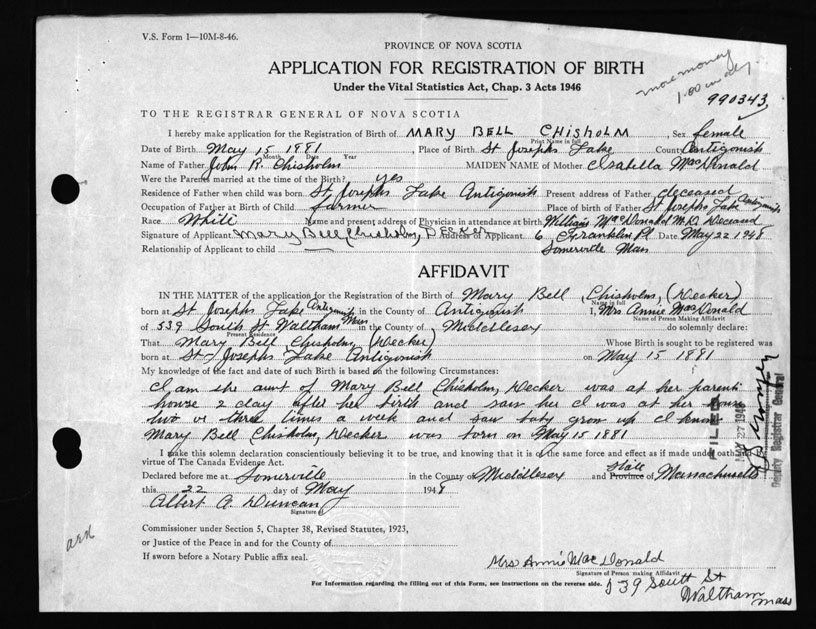 V.S. Form 1—10M-8-46.
PROVINCE OF NOVA SCOTIA
APPLICATION FOR REGISTRATION OF BIRTH
Under the Vital Statistics Act, Chap. 3 Acts 1946
more money
1.00 in all
990343
TO THE REGISTRAR GENERAL OF NOVA SCOTIA
I hereby make application for the Registration of Birth of MARY BELL CHISHOLM, Sex female
Print Name in full
Date of Birth May 15 1881 Place of Birth St Josephs Lake County Antigonish
Month Date Year
Name of Father John R. Chisholm MAIDEN NAME of Mother Isabella MacDonald
Were the Parents married at the time of the Birth? yes
Residence of Father when child was born St Josephs Lake Antigonish Present address of Father deceased
Occupation of Father at Birth of Child farmer Place of birth of Father St Josephs Lake Antigonish
Race White Name and present address of Physician in attendance at birth William MacDonald M.D. Deceased
Signature of Applicant Mary Bell Chisholm, Decker Address of Applicant 6 Franklin Pl Date May 22 1948
Relationship of Applicant to child — Somerville Mass
AFFIDAVIT
IN THE MATTER of the application for the Registration of the Birth of Mary Bell Chisholm, (Decker)
Name in full
born at St Josephs Lake Antigonish in the County of Antigonish I, Mrs Annie MacDonald
Name of Person Making Affidavit
of 539 South St Waltham Mass in the County of Middlesex do solemnly declare:
Present Residence
That Mary Bell Chisholm, (Decker) Whose Birth is sought to be registered was
born at St Josephs Lake Antigonish on May 15 1881
My knowledge of the fact and date of such Birth is based on the following Circumstances:
I am the aunt of Mary Bell Chisholm, Decker was at her parents
house 2 day after her birth and saw her I was at her house
two or three times a week and saw baby grow up I know
Mary Bell Chisholm, Decker was born on May 15 1881
I make this solemn declaration conscientiously believing it to be true, and knowing that it is of the same force and effect as if made under oath
virtue of The Canada Evidence Act.
Declared before me at Somerville in the County of Middlesex and State Province of Massachusetts
this 22 day of May 1948
Albert A. Duncan
Signature
Commissioner under Section 5, Chapter 38, Revised Statutes, 1923,
or Justice of the Peace in and for the County of
If sworn before a Notary Public affix seal.
Mrs Annie MacDonald
Signature of Person making Affidavit
For Information regarding the filling out of this Form, see instructions on the reverse side.
539 South St
Waltham
mass
FILED
MAY 27 1948
Deputy Registrar General